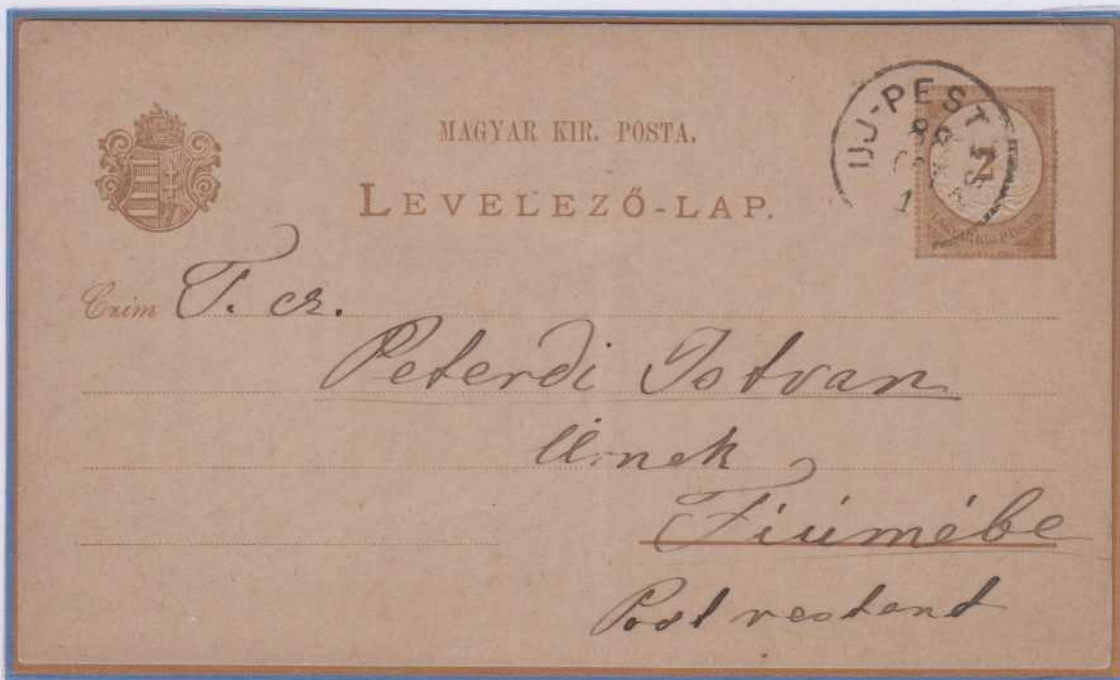 MAGYAR KIR. POSTA.
LEVELEZŐ-LAP.
UJ-PEST
88
2
MAGYAR KIR. POSTA
Czim T. cz.
Peterdi Istvan
Urnak
Fiúmébe
Post restant